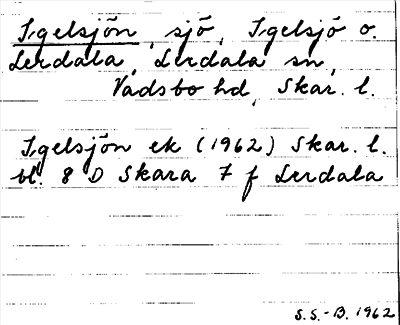 Igelsjön, sjö, Igelsjö o.
Lerdala, Lerdala sn,
Vadsbo hd, Skar. l.
Igelsjön ek (1962) Skar. l.
bl. 8 D Skara 7 f Lerdala
S.S.-B. 1962